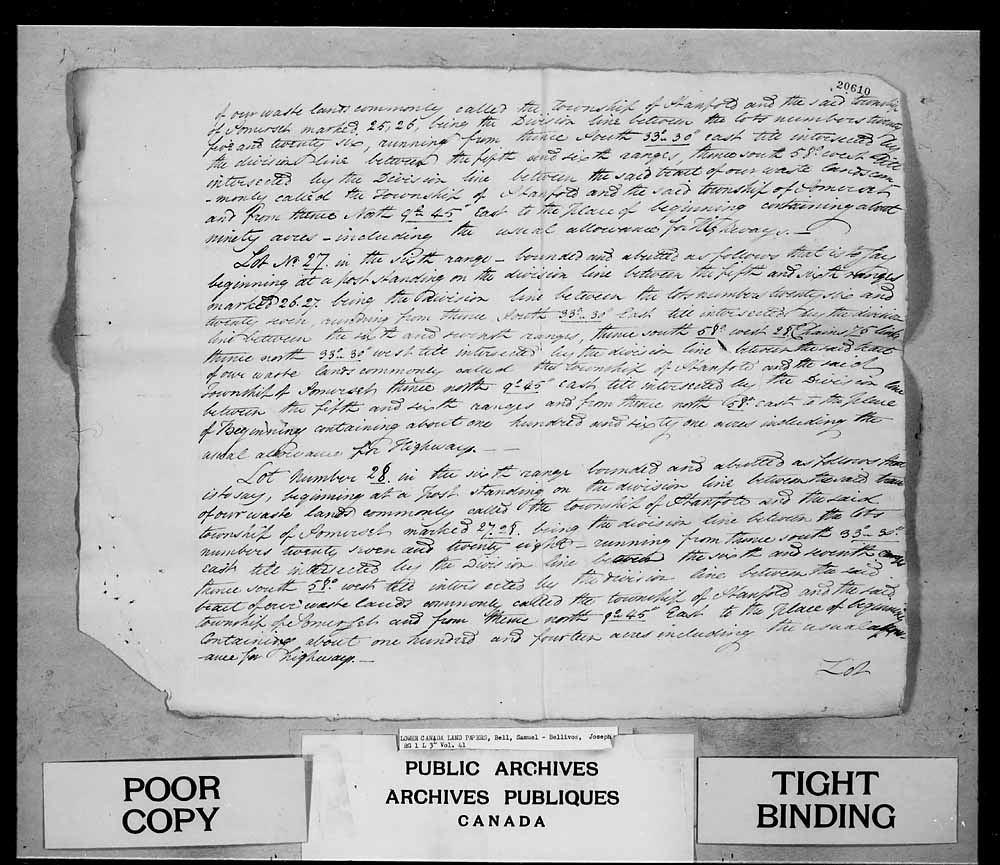 20610
of our waste lands commonly called the Township of Stanfold and the said township
of Somerset marked 25, 26, being the Division line between the lots numbers twenty
five and twenty six, running from thence South 33°. 30' east till intersected by
the division line between the fifth and sixth ranges, thence south 58° west till
intersected by the Division line between the said tract of our waste lands com
-monly called the Township of Stanfold and the said township of Somerset
and from thence North 9°. 45' East to the place of beginning containing about
ninety acres - including the usual allowance for Highways. —
Lot No. 27. in the sixth range - bounded and abutted as follows that is to say
beginning at a post standing on the division line between the fifth and sixth ranges
marked 26.27. being the Division line between the lots numbers twenty six and
twenty seven, running from thence South 33°. 30' East till intersected by the division
line between the sixth and seventh ranges, thence south 58° west 28 Chains 75 links
thence north 33°. 30' west till intersected by the division line between the said tract
of our waste lands commonly called the township of Stanfold and the said
Township of Somerset thence north 9°. 45' east till intersected by the Division line
between the fifth and sixth ranges and from thence north 58° east to the place
of Beginning containing about one hundred and sixty one acres including the
usual allowance for Highways. — —
Lot Number 28. in the sixth range bounded and abutted as follows that
is to say, beginning at a post standing on the division line between the said tract
of our waste lands commonly called the township of Stanfold and the said
township of Somerset marked 27.28. being the division line between the lots
numbers twenty seven and twenty eight - running from thence south 33°. 30'
east till intersected by the Division line between the sixth and seventh ranges
thence south 58° west till intersected by the division line between the said
tract of our waste lands commonly called the township of Stanfold and the said
township of Somerset and from thence north 9°. 45' East to the place of beginning
Containing about one hundred and fourteen acres including the usual allow
-ance for highways. —
Lot
LOWER CANADA LAND PAPERS, Bell, Samuel - Bellivos, Joseph
RG 1 L 3" Vol. 41
POOR
COPY
PUBLIC ARCHIVES
ARCHIVES PUBLIQUES
CANADA
TIGHT
BINDING